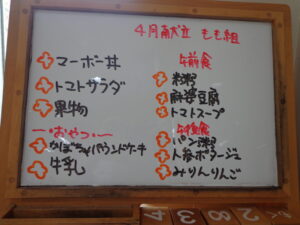 4月献立 もも組
マーボー丼
トマトサラダ
果物
おやつ
かぼちゃパウンドケーキ
牛乳
午前食
粥
麻婆豆腐
トマトスープ
午後食
パン粥
人参ポタージュ
みりんりんご
8
3
4